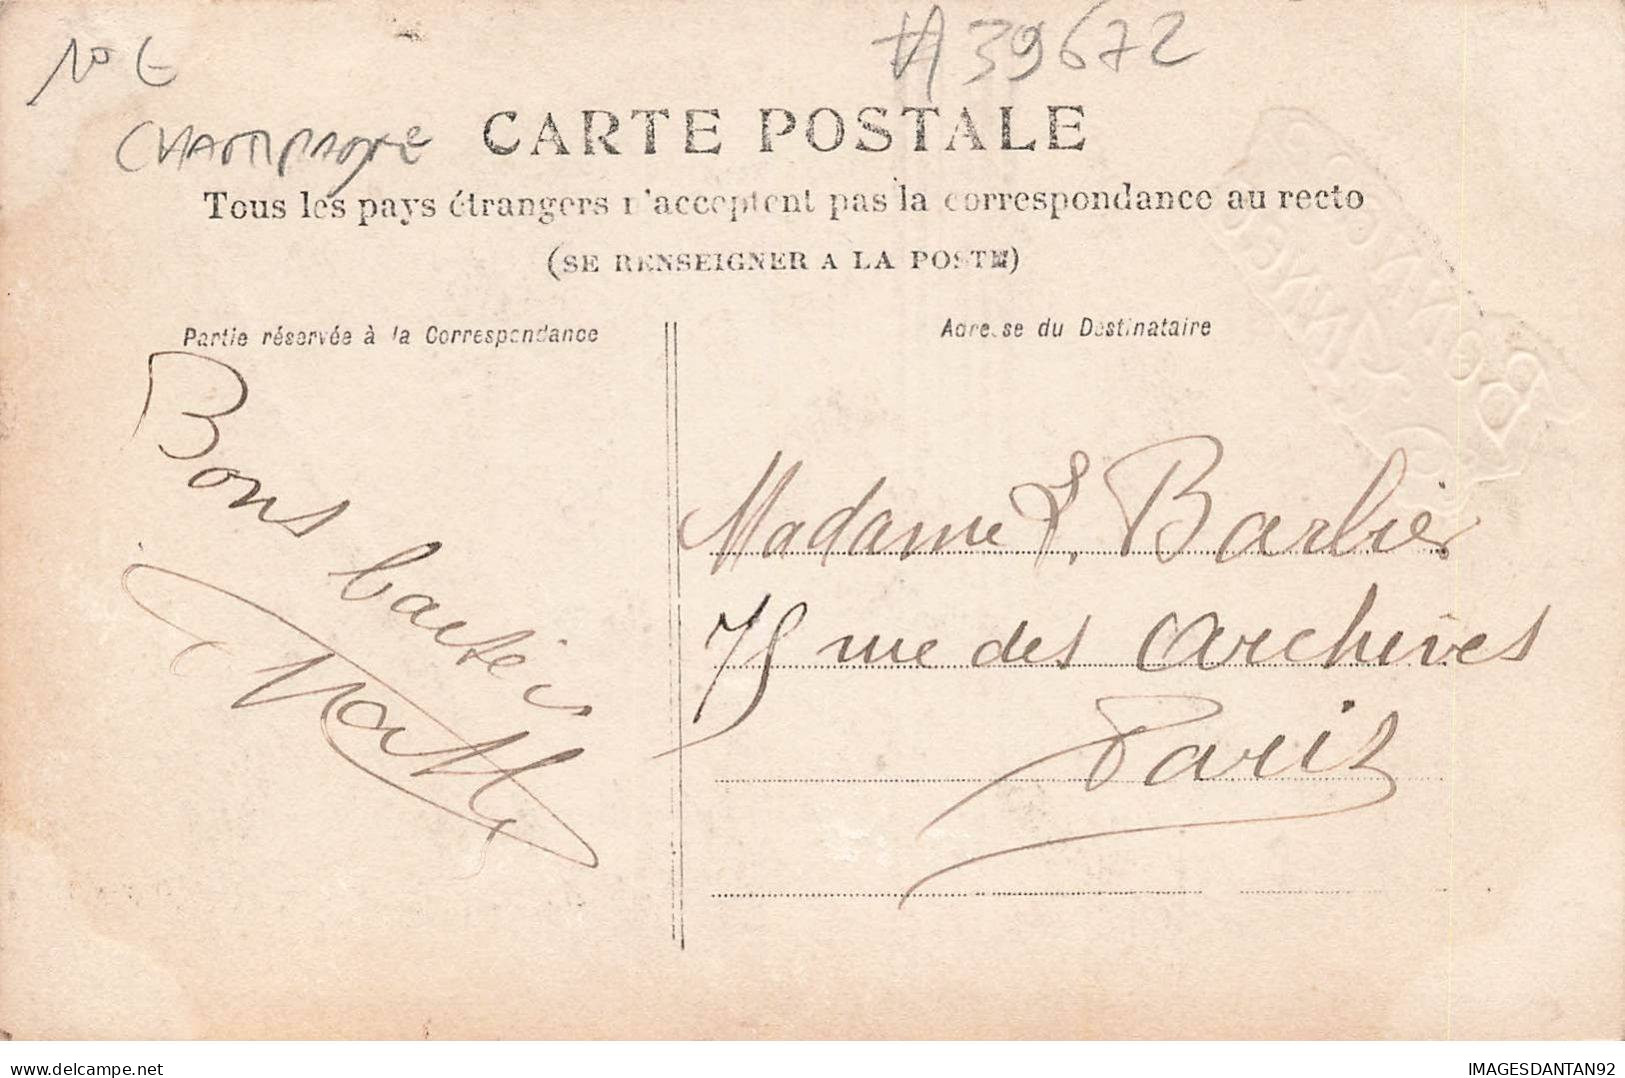 10 €
#A39672
CHAMPAGNE
CARTE POSTALE
Tous les pays étrangers n'acceptent pas la correspondance au recto
(SE RENSEIGNER A LA POSTE)
Partie réservée à la Correspondance
Adresse du Destinataire
Bons
baisers
Madame Barbier
75 rue des Archives
Paris
BONNE ANNÉE
IMAGESDANTAN92